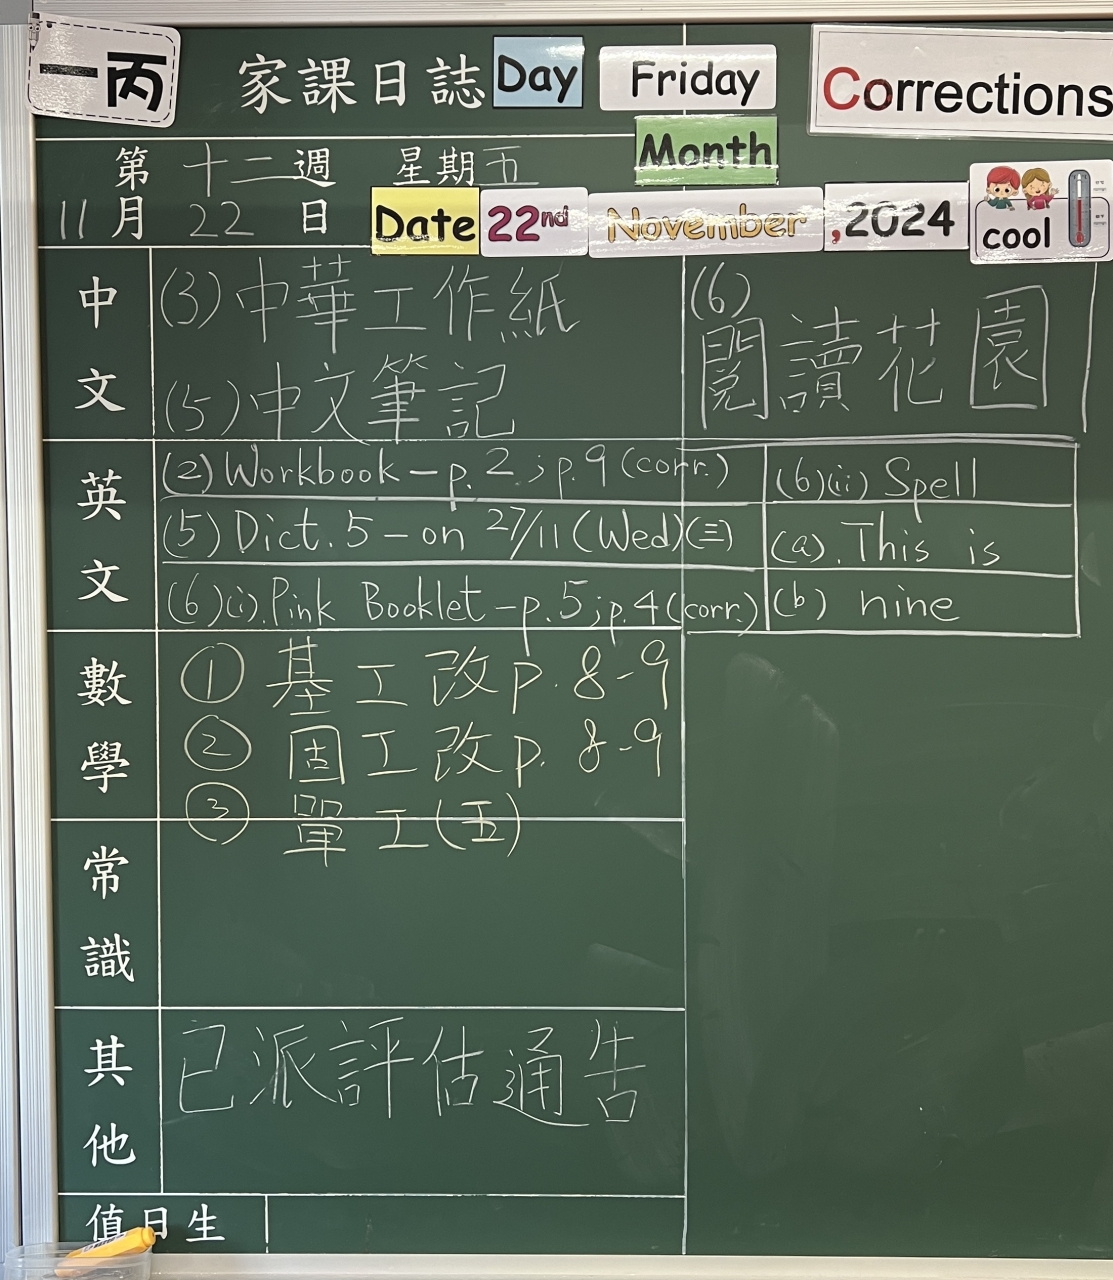 一丙
家課日誌 Day Friday
Corrections
Month
第十二週 星期五
11月22日 Date 22nd November ,2024
cool
中文
(3) 中華工作紙
(5) 中文筆記
(6)
閱讀花園
英文
(2) Workbook – p.2 ; p.9 (corr.)
(5) Dict. 5 – on 27/11 (Wed)(三)
(6)(i). Pink Booklet – p.5 ; p.4 (corr.)
(6)(ii) Spell
(a). This is
(b) nine
數學
① 基工改 p. 8-9
② 固工改 p. 8-9
③ 單工(五)
常識
其他
已派評估通告
值日生